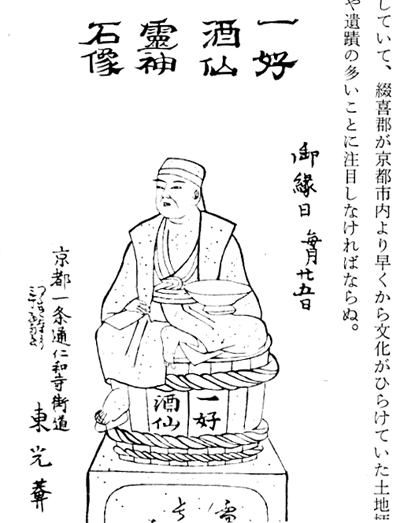 していて、綴喜郡が京都市内より早くから文化がひらけていた土地
や遺蹟の多いことに注目しなければならぬ。
一好
酒仙
靈神
石像
御縁日 毎月廿五日
一好
酒仙
京都一条通仁和寺街道
東光葊